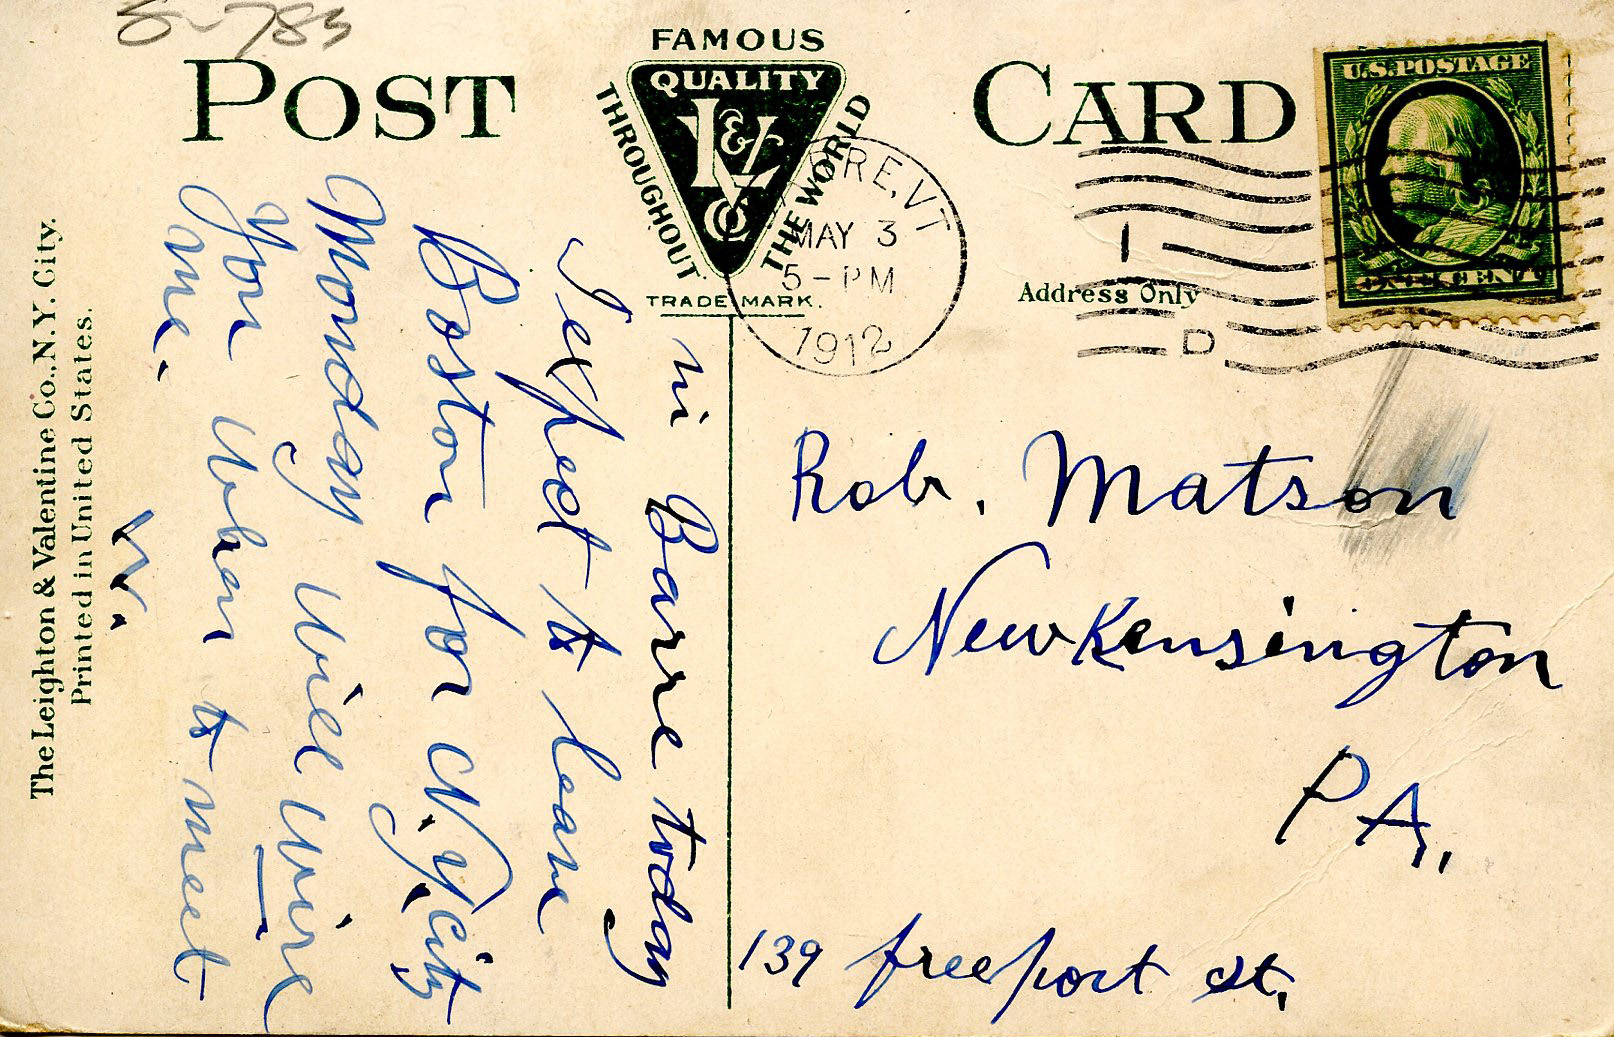 5-785
POST CARD
FAMOUS
QUALITY
THROUGHOUT
THE WORLD
L & V Co
TRADE MARK.
RRE, VT
MAY 3
5-PM
1912
1
D
Address Only
U.S. POSTAGE
ONE CENT
in Barre today
I expect to leave
Boston for N.Y. City
Monday will wire
you when to meet
me.
W.
Rob. Matson
New Kensington
PA.
139 freeport st.
The Leighton & Valentine Co., N.Y. City.
Printed in United States.